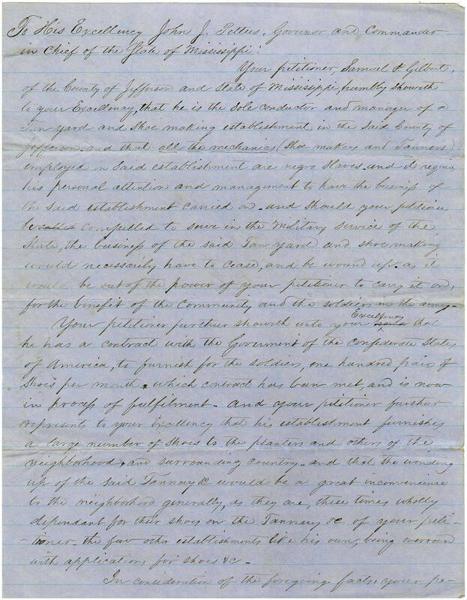 To His Excellency John J. Pettus, Governor and Commander
in Chief of the State of Mississippi.
Your petitioner, Samuel A Gilbert,
of the County of Jefferson and State of Mississippi, humbly sheweth
to your Excellency, that he is the Sole conductor and manager of a
Tan yard and Shoe making establishment, in the Said County of
Jefferson, and that all the mechanics (Shoe makers and Tanners)
employed in Said establishment are negro Slaves, and it requires
his personal attention and management to have the business of
the Said establishment carried on. and Should your petitioner
be compelled to serve in the Military Service of the
State, the business of the said Tan yard and shoe making
would necessarily have to cease, and be wound up. as it
would be out of the power of your petitioner to carry it on,
for the benefit of the Community and the soldiers in the army.
Your petitioner further sheweth unto your Excellency that
he has a contract with the Government of the Confederate States
of America, to furnish for the soldiers, one hundred pair of
Shoes per month. which contract has been met, and is now
in process of fulfilment. And your petitioner further
represents to your Excellency that his establishment furnishes
a large number of Shoes to the planters and others of the
neighborhood, and surrounding country. and that the winding
up of the said Tannery &c would be a great inconvenience
to the neighborhood generally, as they are, these times wholly
dependant for their shoes on the Tannery &c of your peti-
-tioner. the few other establishments like his own, being overrun
with applications for shoes &c.
In consideration of the foregoing facts, your pe-